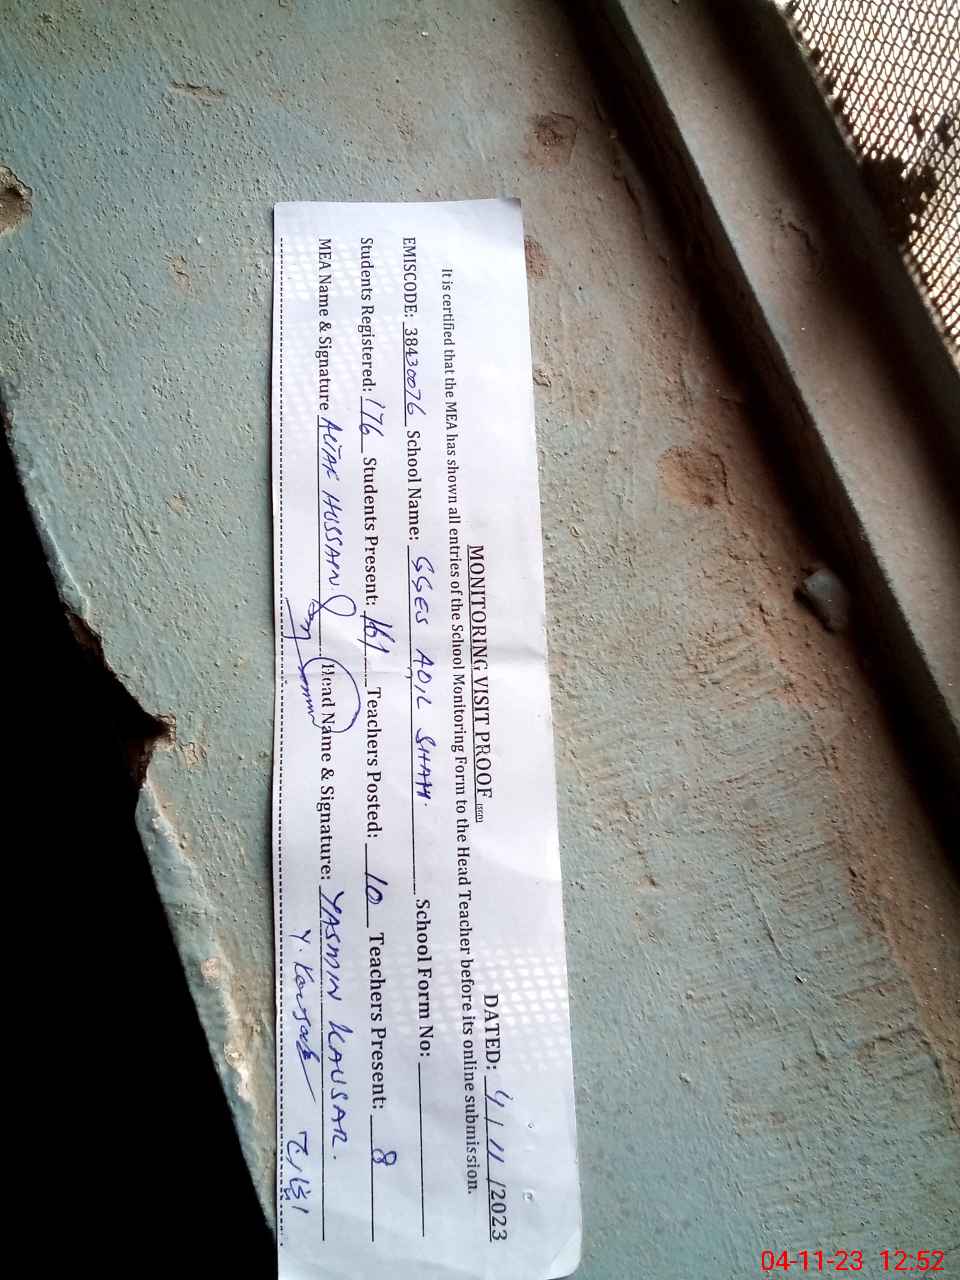 MONITORING VISIT PROOF (SED)
DATED: 4/11/2023
It is certified that the MEA has shown all entries of the School Monitoring Form to the Head Teacher before its online submission.
EMISCODE: 38430076 School Name: GGES ADIL SHAH. School Form No:
Students Registered: 176 Students Present: 161 Teachers Posted: 10 Teachers Present: 8
MEA Name & Signature ALTAF HUSSAIN Head Name & Signature: YASMIN KAUSAR.
Y. Kausar
04-11-23 12:52